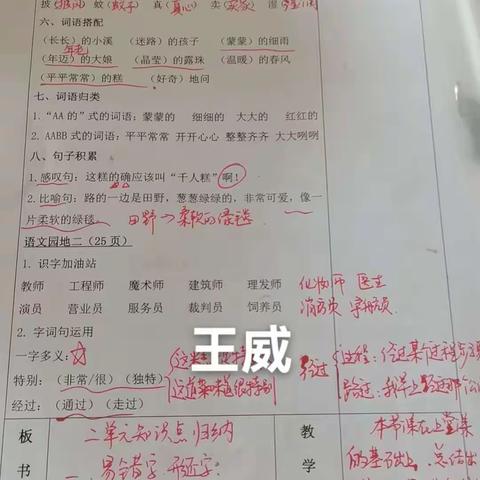 披(披风) 蚊(蚊子) 真(真心) 卖(买家) 湿
六、词语搭配
(长长)的小溪 (迷路)的孩子 (蒙蒙)的细雨
年老
(年迈)的大娘 (晶莹)的露珠 (温暖)的春风
(平平常常)的糕 (好奇)地问
七、词语归类
1.“AA 的”式的词语：蒙蒙的 细细的 大大的 红红的
2. AABB 式的词语：平平常常 开开心心 整整齐齐 大大咧咧
八、句子积累
1.感叹句：这糕的确应该叫“千人糕”啊！
2.比喻句：路的一边是田野，葱葱绿绿的，非常可爱，像一
片柔软的绿毯。 田野→柔软的绿毯
语文园地二（25 页）
1. 识字加油站
教师 工程师 魔术师 建筑师 理发师 化妆师 医生
演员 营业员 服务员 裁判员 饲养员 消防员 宇航员
2. 字词句运用
王威
一字多义：
特别：（非常/很）（独特） 这道菜味道很特别
经过：（通过）（走过）
经过
过程：经过某
路过：我早上路过那
板 二单元知识点归纳 教 本节课在上堂课
书 一、易错字 形近字： 学 的基础上，总结出